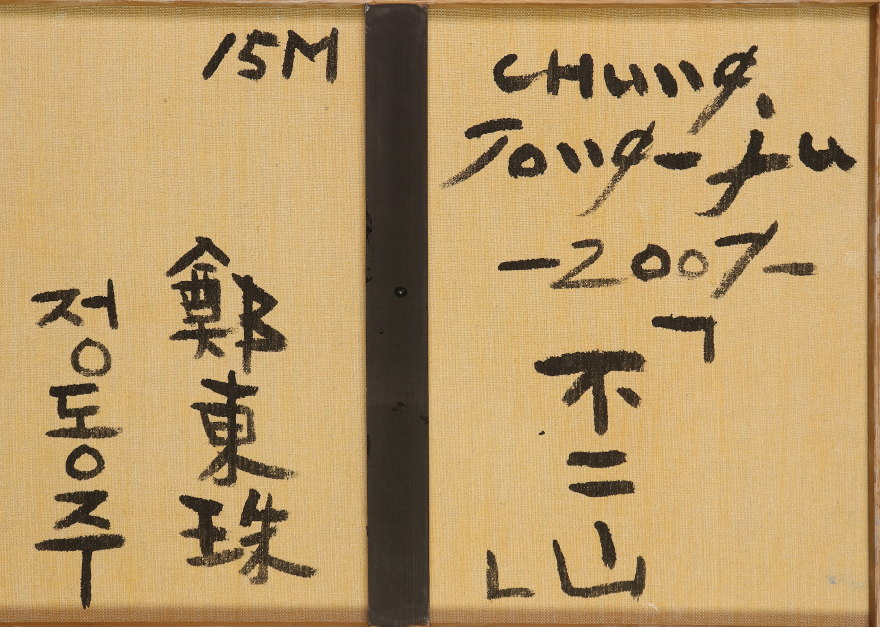 15M
鄭東珠
정동주
CHung
Tong-ju
-2007-
「不二山」